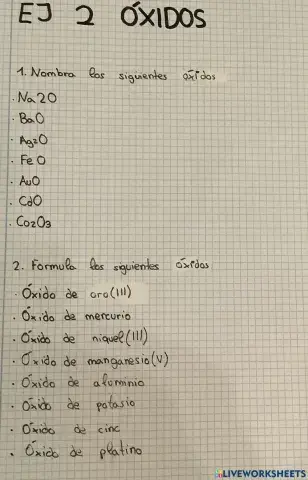 EJ 2 ÓXIDOS
1. Nombra los siguientes óxidos
· Na2O
· BaO
· Ag2O
· FeO
· AuO
· CdO
· Co2O3
2. Formula los siguientes óxidos
· Óxido de oro (III)
· Óxido de mercurio
· Óxido de niquel (III)
· Óxido de manganesio (V)
· Óxido de aluminio
· Óxido de potasio
· Óxido de cinc
· Óxido de platino
LIVEWORKSHEETS